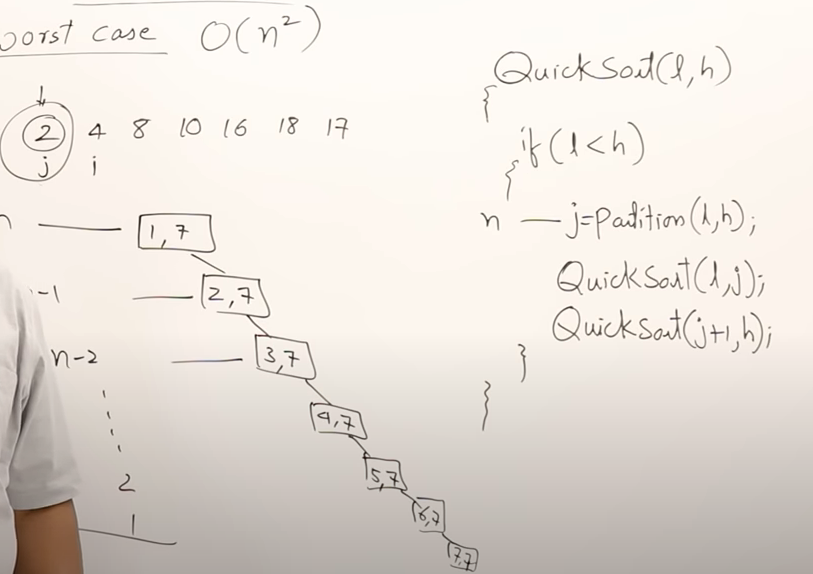 worst case O(n²)
2 4 8 10 16 18 17
j i
n
1,7
-1
2,7
n-2
3,7
4,7
5,7
2
6,7
1
7,7
QuickSort(l,h)
{
if(l<h)
{
n — j=Partition(l,h);
QuickSort(l,j);
QuickSort(j+1,h);
}
}